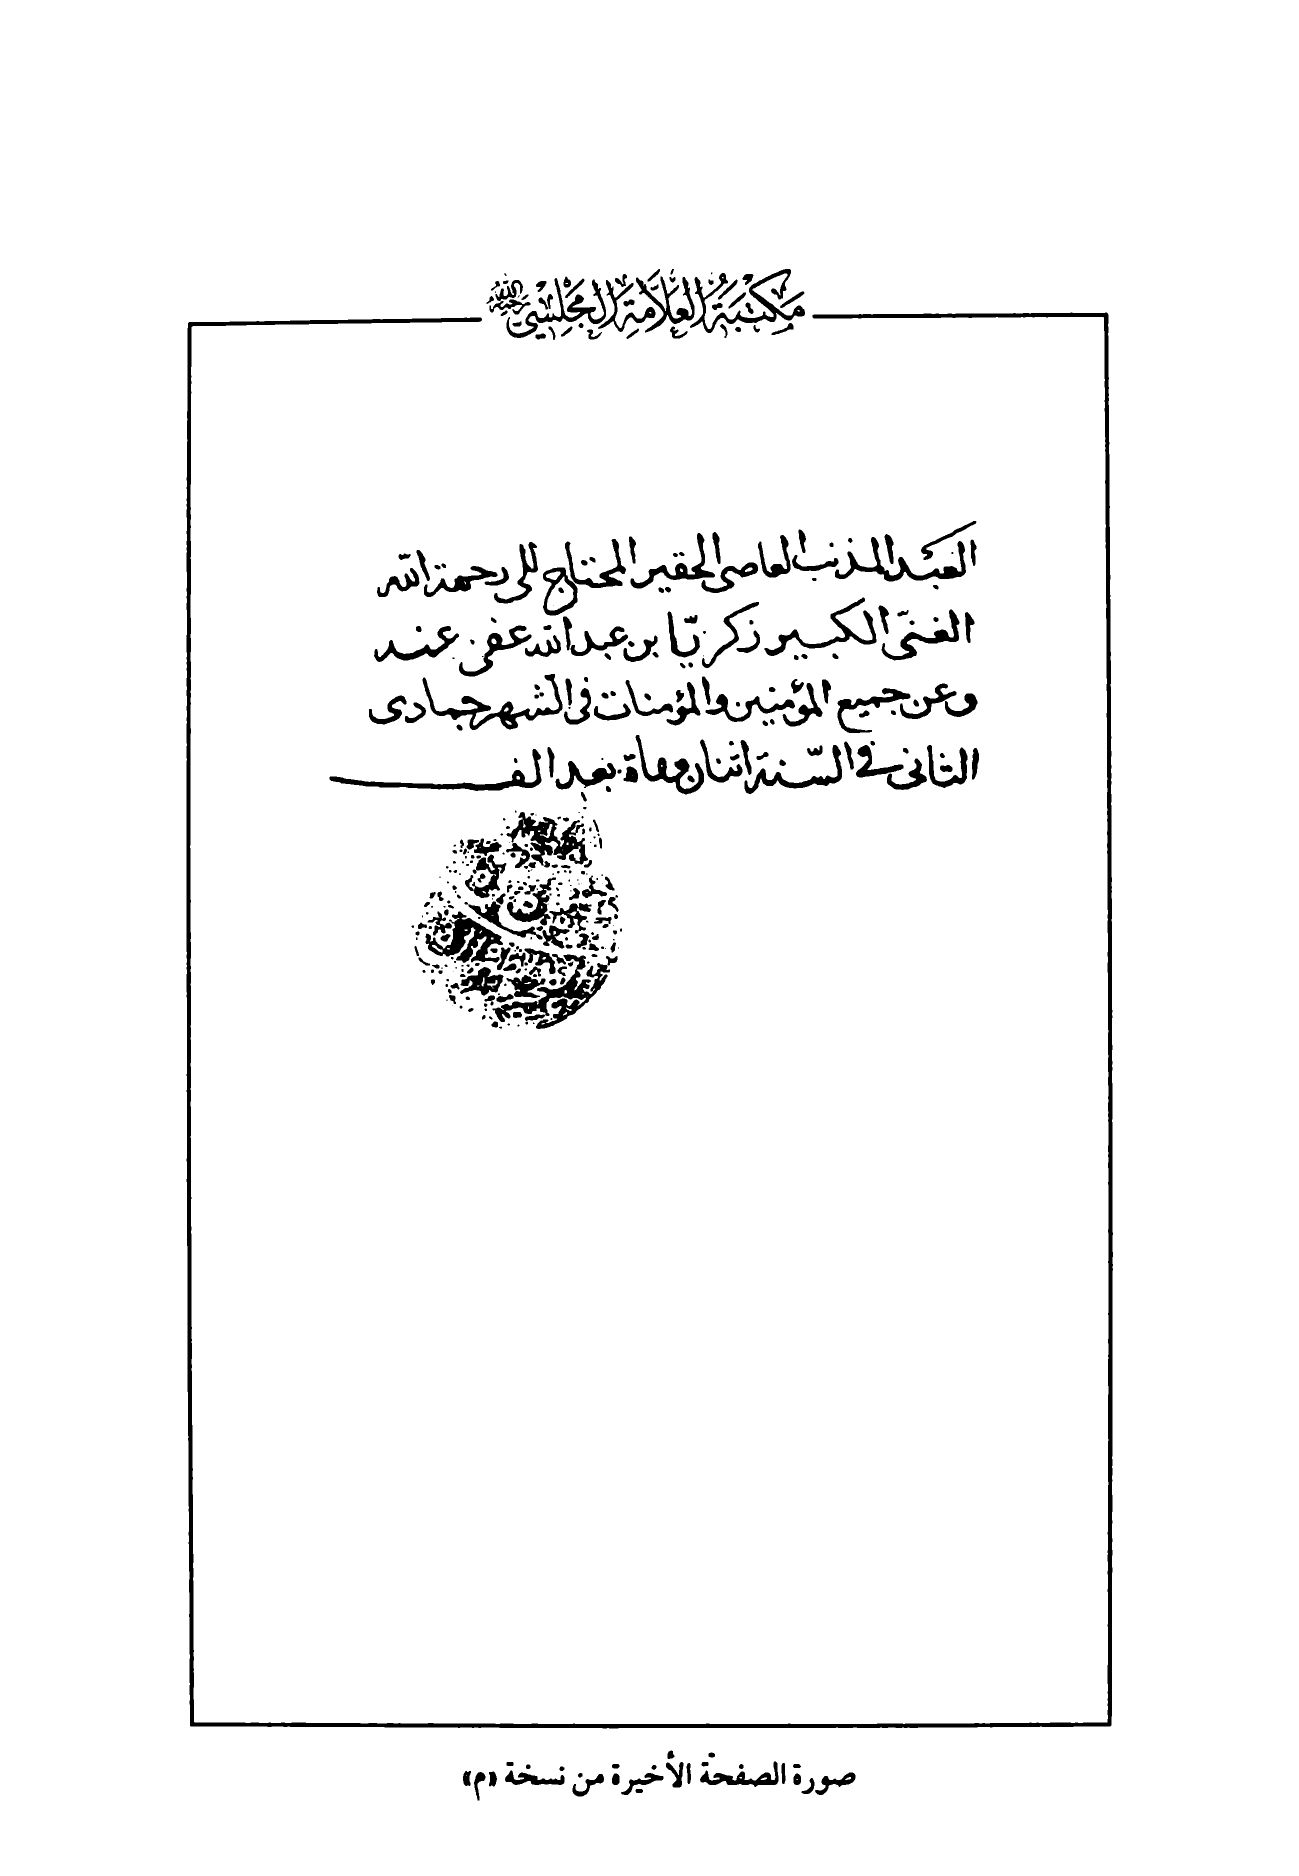 مكتبة العلامة المجلسي رحمه الله
العبد المذنب العاصى الحقير المحتاج الى رحمة الله
الغنىّ الكبير زكريّا بن عبد الله عفى عنه
وعن جميع المؤمنين والمؤمنات فى الشّهر جمادى
الثانى فى السّنة اثنان ومأة بعد الف
صورة الصفحة الأخيرة من نسخة «م»